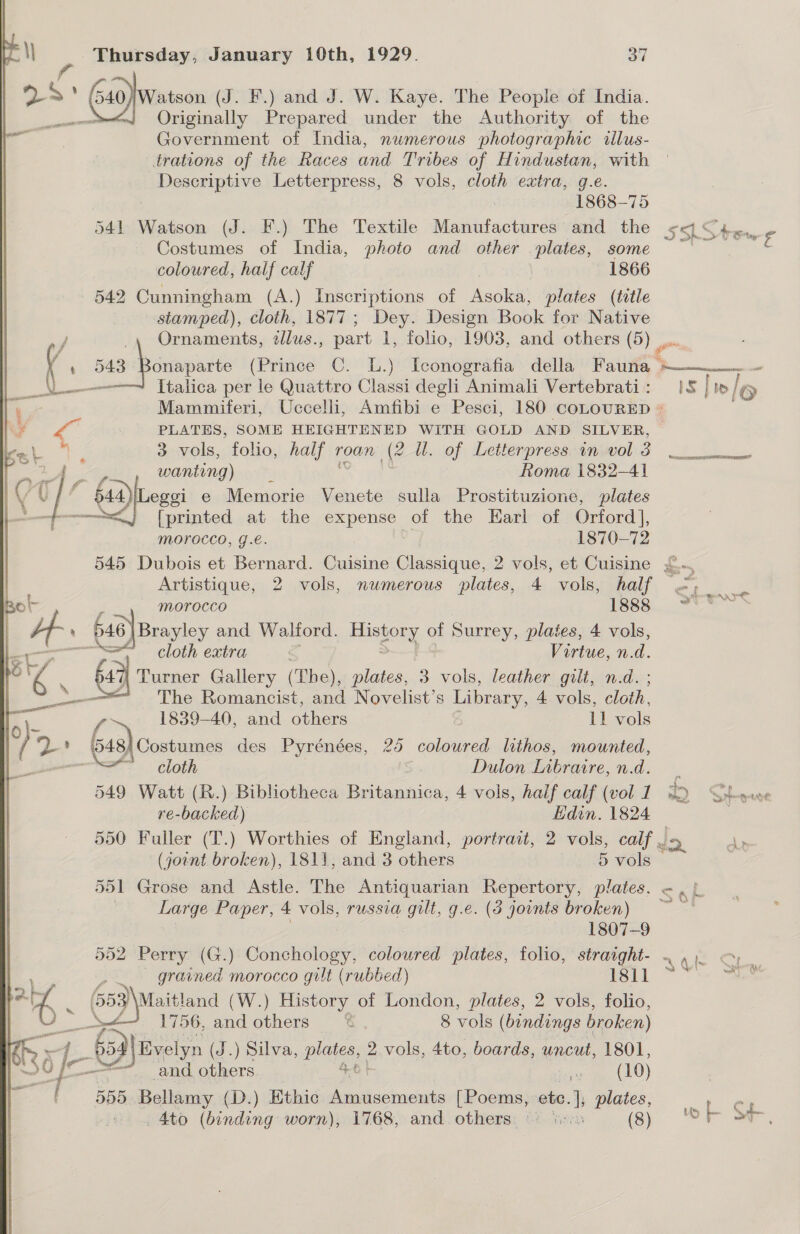 Thursday, January 10th, 1929. 37
540 Watson (J. F.) and J. W. Kaye. The People of India.
Originally Prepared under the Authority of the
Government of India, numerous photographic illus-
trations of the Races and Tribes of Hindustan, with
Descriptive Letterpress, 8 vols, cloth extra, g.e.
1868-75
541 Watson (J. F.) The Textile Manufactures and the
Costumes of India, photo and other plates, some
coloured, half calf 1866
542 Cunningham (A.) Inscriptions of Asoka, plates (title
stamped), cloth, 1877; Dey. Design Book for Native
Ornaments, illus., part 1, folio, 1903, and others (5)
543 Bonaparte (Prince C. L.) Iconografia della Fauna
Italica per le Quattro Classi degli Animali Vertebrati:
Mammiferi, Uccelli, Amfibi e Pesci, 180 COLOURED
PLATES, SOME HEIGHTENED WITH GOLD AND SILVER,
3 vols, folio, half roan (2 ll. of Letterpress in vol 3
wanting) Roma 1832-41
544 Leggi e Memorie Venete sulla Prostituzione, plates
[printed at the expense of the Earl of Orford],
morocco, g.e. 1870-72
545 Dubois et Bernard. Cuisine Classique, 2 vols, et Cuisine
Artistique, 2 vols, numerous plates, 4 vols, half
morocco 1888
546 Brayley and Walford. History of Surrey, plates, 4 vols,
cloth extra Virtue, n.d.
547 Turner Gallery (The), plates, 3 vols, leather gilt, n.d.;
The Romancist, and Novelist's Library, 4 vols, cloth,
1839-40, and others 11 vols
548 Costumes des Pyrénées, 25 coloured lithos, mounted,
cloth Dulon Libraire, n.d.
549 Watt (R.) Bibliotheca Britannica, 4 vols, half calf (vol 1
re-backed) Edin. 1824
550 Fuller (T.) Worthies of England, portrait, 2 vols, calf
(joint broken), 1811, and 3 others 5 vols
551 Grose and Astle. The Antiquarian Repertory, plates.
Large Paper, 4 vols, russia gilt, g.e. (3 joints broken)
1807-9
552 Perry (G.) Conchology, coloured plates, folio, straight-
grained morocco gilt (rubbed) 1811
553 Maitland (W.) History of London, plates, 2 vols, folio,
1756, and others 8 vols (bindings broken)
554 Evelyn (J.) Silva, plates, 2 vols, 4to, boards, uncut, 1801,
and others (10)
555 Bellamy (D.) Ethic Amusements [Poems, etc.], plates,
4to (binding worn), 1768, and others (8)